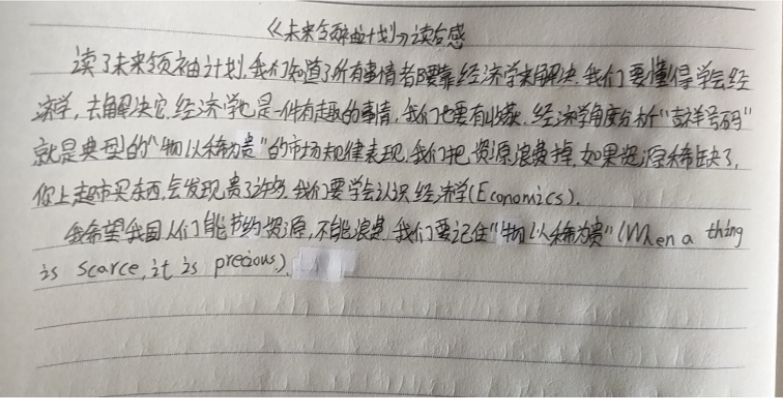 《未来领袖计划》读后感
读了未来领袖计划,我们知道了所有事情都要靠经济学来解决.我们要懂得学会经
济学,去解决它.经济学也是一件有趣的事情,我们也要有收获.经济学角度分析“吉祥号码”
就是典型的“物以稀为贵”的市场规律表现.我们把资源浪费掉,如果资源稀缺了,
你上超市买东西,会发现贵了许多.我们要学会认识经济学(Economics).
我希望我国人们能节约资源,不能浪费.我们要记住“物以稀为贵”(When a thing
is scarce,it is precious).